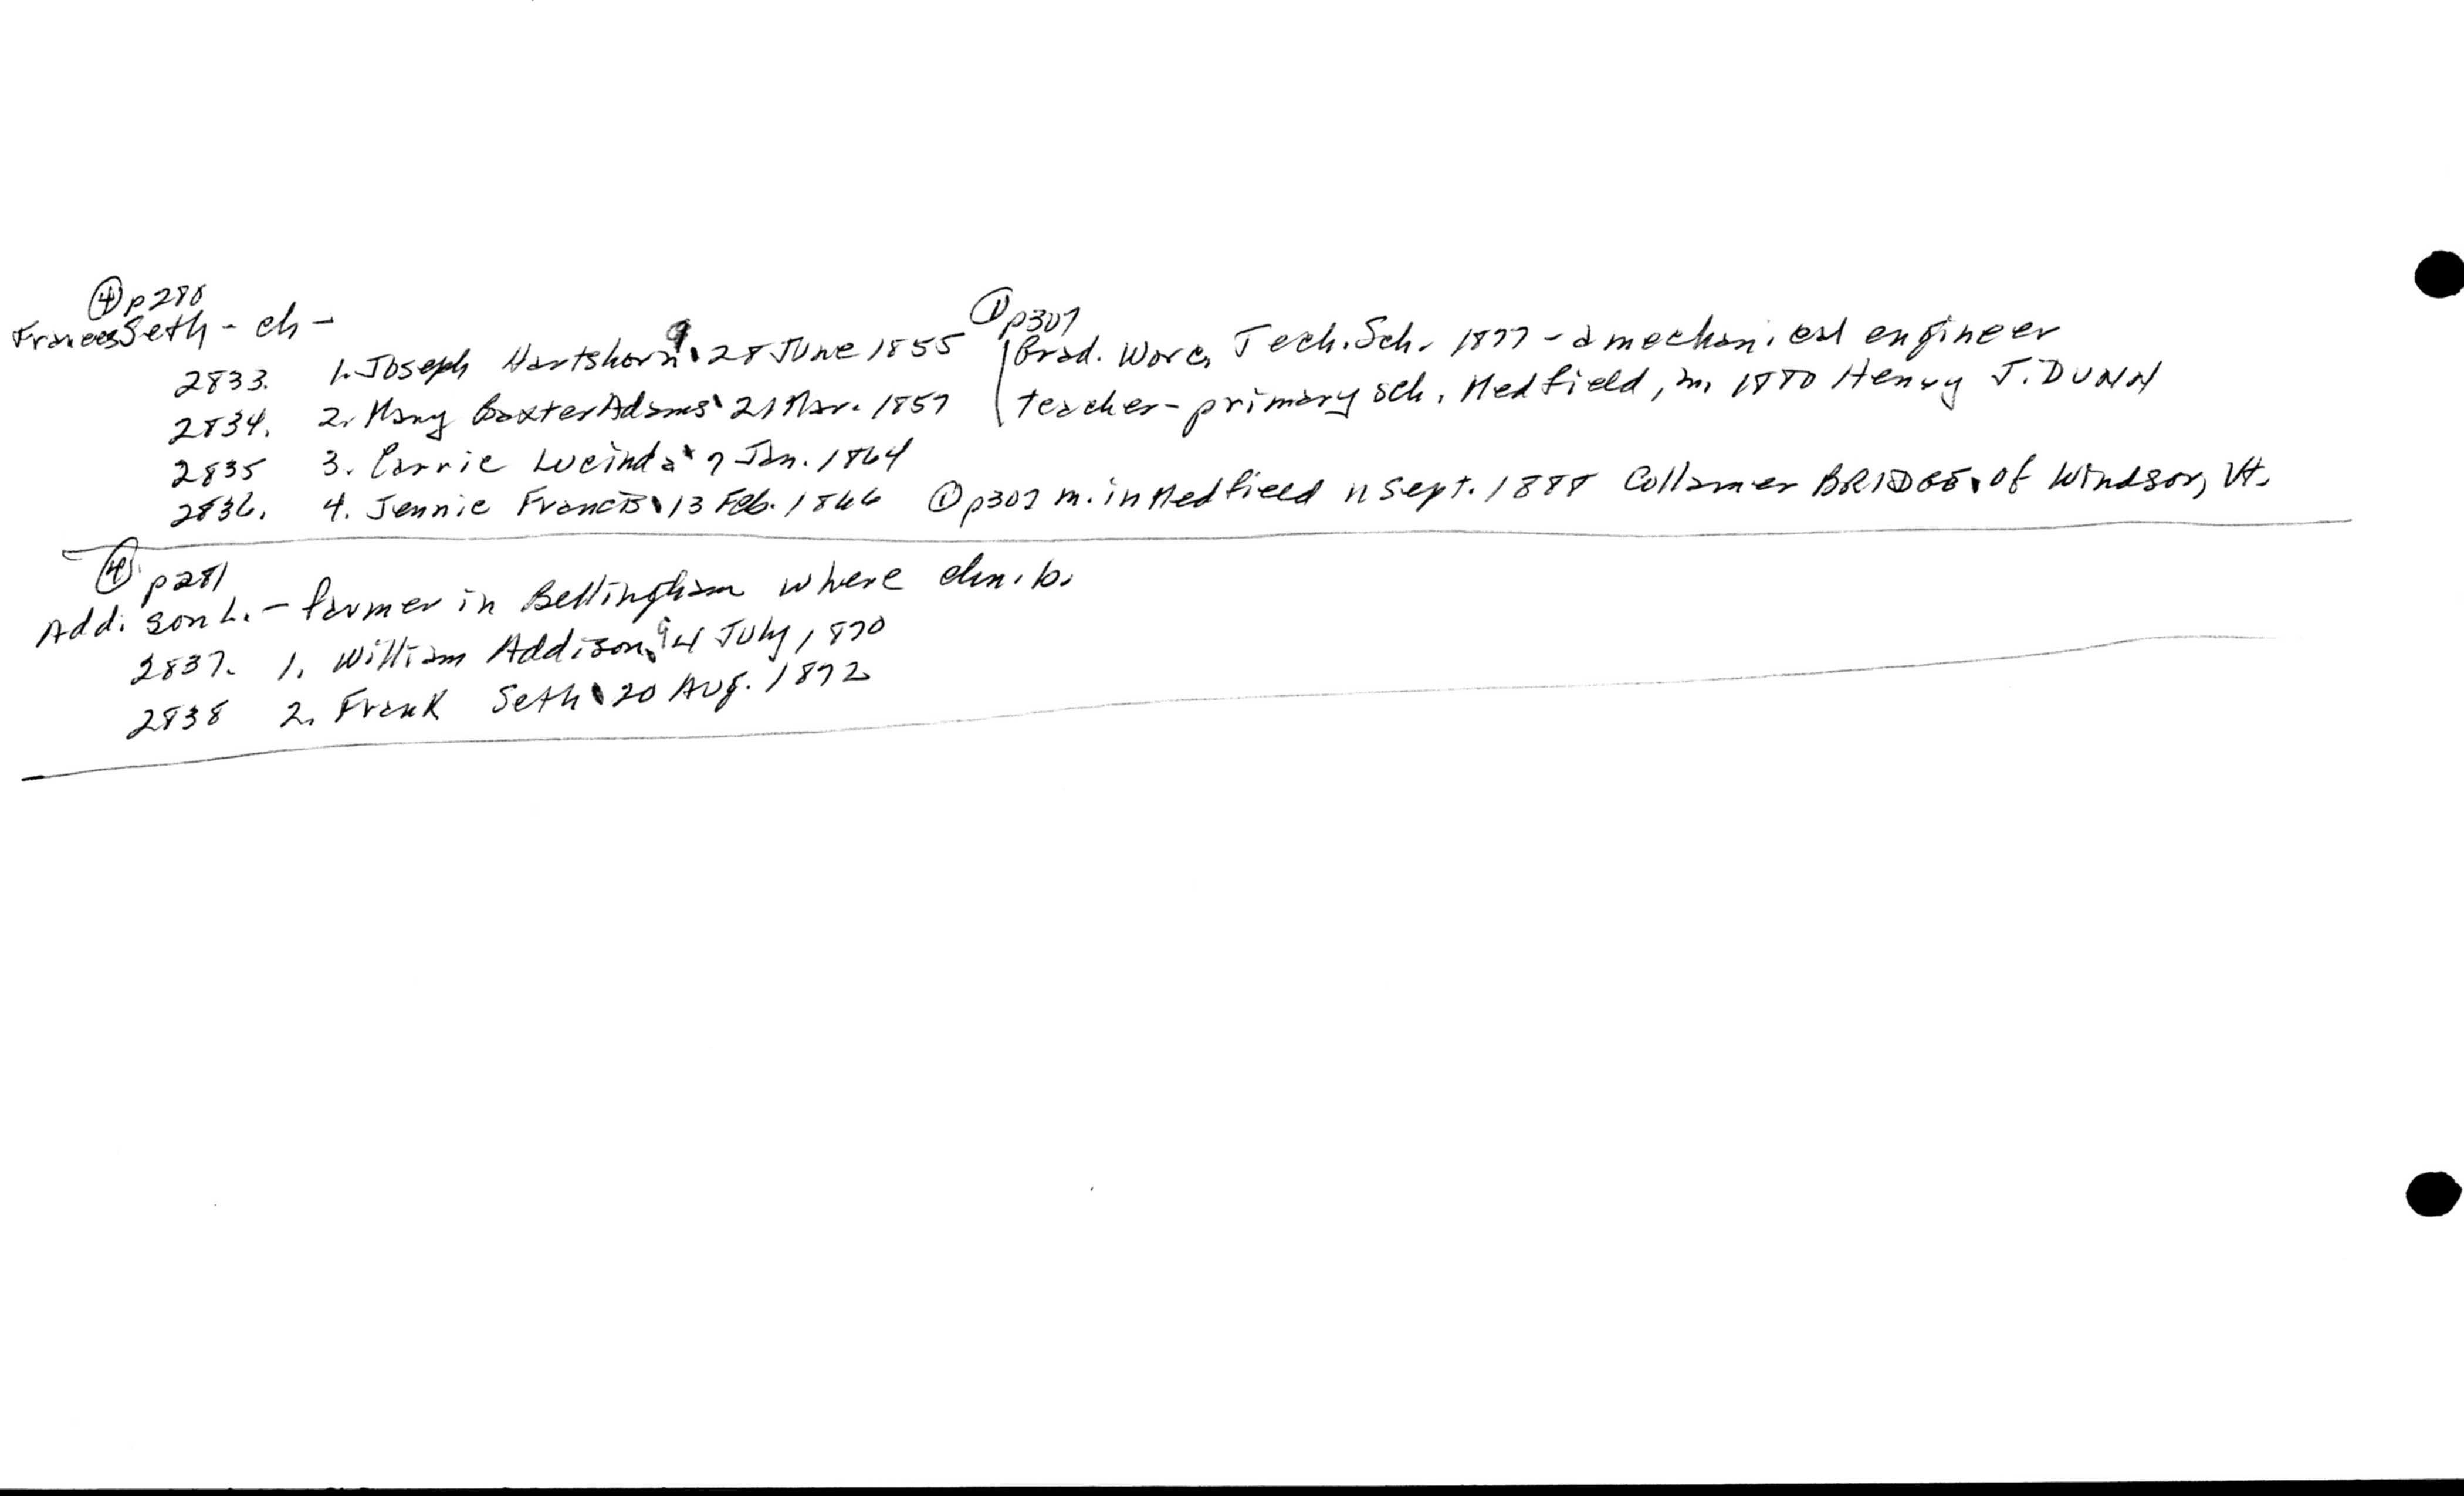 ④ p280
Frances Seth - ch -
2833. 1. Joseph Hartshorn⁹. 28 June 1855 ① p307 Grad. Worc. Tech. Sch. 1877 - a mechanical engineer
2834. 2. Mary Baxter Adams 21 Mar. 1857 teacher - primary sch. Medfield, m. 1880 Henry J. DUNN
2835 3. Carrie Lucinda 7 Jan. 1864
2836. 4. Jennie Francis 13 Feb. 1866 ① p307 m. in Medfield 11 Sept. 1888 Collamer BRIDGE of Windsor, Vt.
④ p281
Addison L. - farmer in Bellingham where chn. b.
2837. 1. William Addison⁹ 4 July 1870
2838 2. Frank Seth 20 Aug. 1872